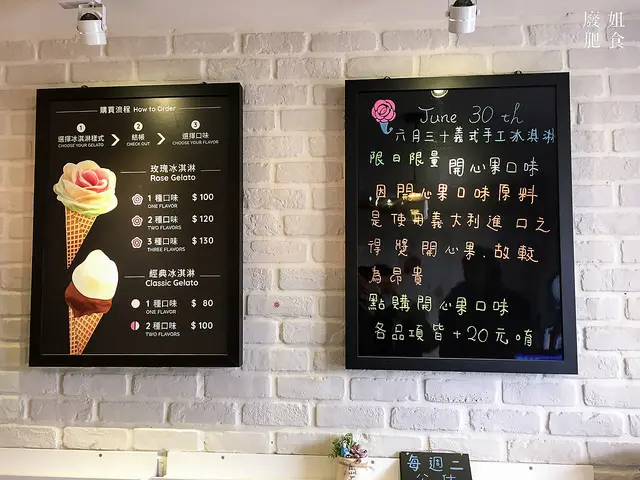 廢 姐
肥 食
購買流程 How to Order
1
選擇冰淇淋樣式
CHOOSE YOUR GELATO
2
結帳
CHECK OUT
3
選擇口味
CHOOSE YOUR FLAVOR
玫瑰冰淇淋
Rose Gelato
1 種口味 $ 100
ONE FLAVOR
2 種口味 $ 120
TWO FLAVORS
3 種口味 $ 130
THREE FLAVORS
經典冰淇淋
Classic Gelato
1 種口味 $ 80
ONE FLAVOR
2 種口味 $ 100
TWO FLAVORS
June 30 th
六月三十義式手工冰淇淋
限日限量 開心果口味
因開心果口味原料
是使用義大利進口之
得獎開心果.故較
為昂貴
點購開心果口味
各品項皆+20元唷
每週二